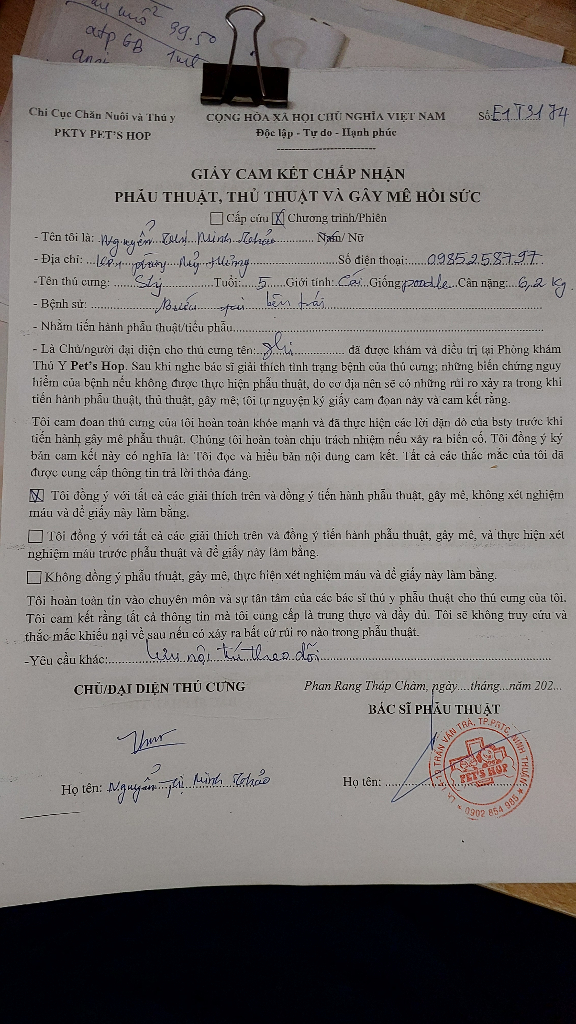 99.50
Chi Cục Chăn Nuôi và Thú y
PKTY PET'S HOP
CỘNG HÒA XÃ HỘI CHỦ NGHĨA VIỆT NAM
Độc lập - Tự do - Hạnh phúc
Số E1T3174
GIẤY CAM KẾT CHẤP NHẬN
PHẪU THUẬT, THỦ THUẬT VÀ GÂY MÊ HỒI SỨC
☐ Cấp cứu ☒ Chương trình/Phiên
- Tên tôi là: Nguyễn Thị Minh Thảo Nam/ Nữ
- Địa chỉ: Mỹ Hương Số điện thoại: 0985258797
-Tên thú cưng: Tuổi: 5 Giới tính: Cái Giống: poodle Cân nặng: 6,2 kg
- Bệnh sử: bên trái
- Nhằm tiến hành phẫu thuật/tiểu phẫu
- Là Chủ/người đại diện cho thú cưng tên: đã được khám và điều trị tại Phòng khám
Thú Y Pet's Hop. Sau khi nghe bác sĩ giải thích tình trạng bệnh của thú cưng; những biến chứng nguy
hiểm của bệnh nếu không được thực hiện phẫu thuật, do cơ địa nên sẽ có những rủi ro xảy ra trong khi
tiến hành phẫu thuật, thủ thuật, gây mê; tôi tự nguyện ký giấy cam đoan này và cam kết rằng.
Tôi cam đoan thú cưng của tôi hoàn toàn khỏe mạnh và đã thực hiện các lời dặn dò của bsty trước khi
tiến hành gây mê phẫu thuật. Chúng tôi hoàn toàn chịu trách nhiệm nếu xảy ra biến cố. Tôi đồng ý ký
bản cam kết này có nghĩa là: Tôi đọc và hiểu bản nội dung cam kết. Tất cả các thắc mắc của tôi đã
được cung cấp thông tin trả lời thỏa đáng.
☒ Tôi đồng ý với tất cả các giải thích trên và đồng ý tiến hành phẫu thuật, gây mê, không xét nghiệm
máu và để giấy này làm bằng.
☐ Tôi đồng ý với tất cả các giải thích trên và đồng ý tiến hành phẫu thuật, gây mê, và thực hiện xét
nghiệm máu trước phẫu thuật và để giấy này làm bằng.
☐ Không đồng ý phẫu thuật, gây mê, thực hiện xét nghiệm máu và để giấy này làm bằng.
Tôi hoàn toàn tin vào chuyên môn và sự tân tâm của các bác sĩ thú y phẫu thuật cho thú cưng của tôi.
Tôi cam kết rằng tất cả thông tin mà tôi cung cấp là trung thực và đầy đủ. Tôi sẽ không truy cứu và
thắc mắc khiếu nại về sau nếu có xảy ra bất cứ rủi ro nào trong phẫu thuật.
-Yêu cầu khác: Lưu nội trú theo dõi
CHỦ/ĐẠI DIỆN THÚ CƯNG
Phan Rang Tháp Chàm, ngày....tháng...năm 202...
BÁC SĨ PHẪU THUẬT
Họ tên: Nguyễn Thị Minh Thảo
Họ tên:
TRẦN VĂN TRÀ, TP.PRTC, NINH THUẬN
PET'S HOP
0902 854 985